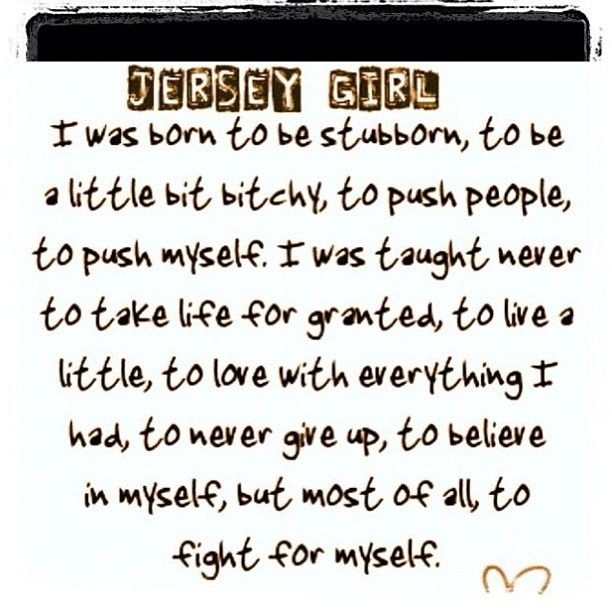 JERSEY GIRL
I was born to be stubborn, to be
a little bit bitchy, to push people,
to push myself. I was taught never
to take life for granted, to live a
little, to love with everything I
had, to never give up, to believe
in myself, but most of all, to
fight for myself.